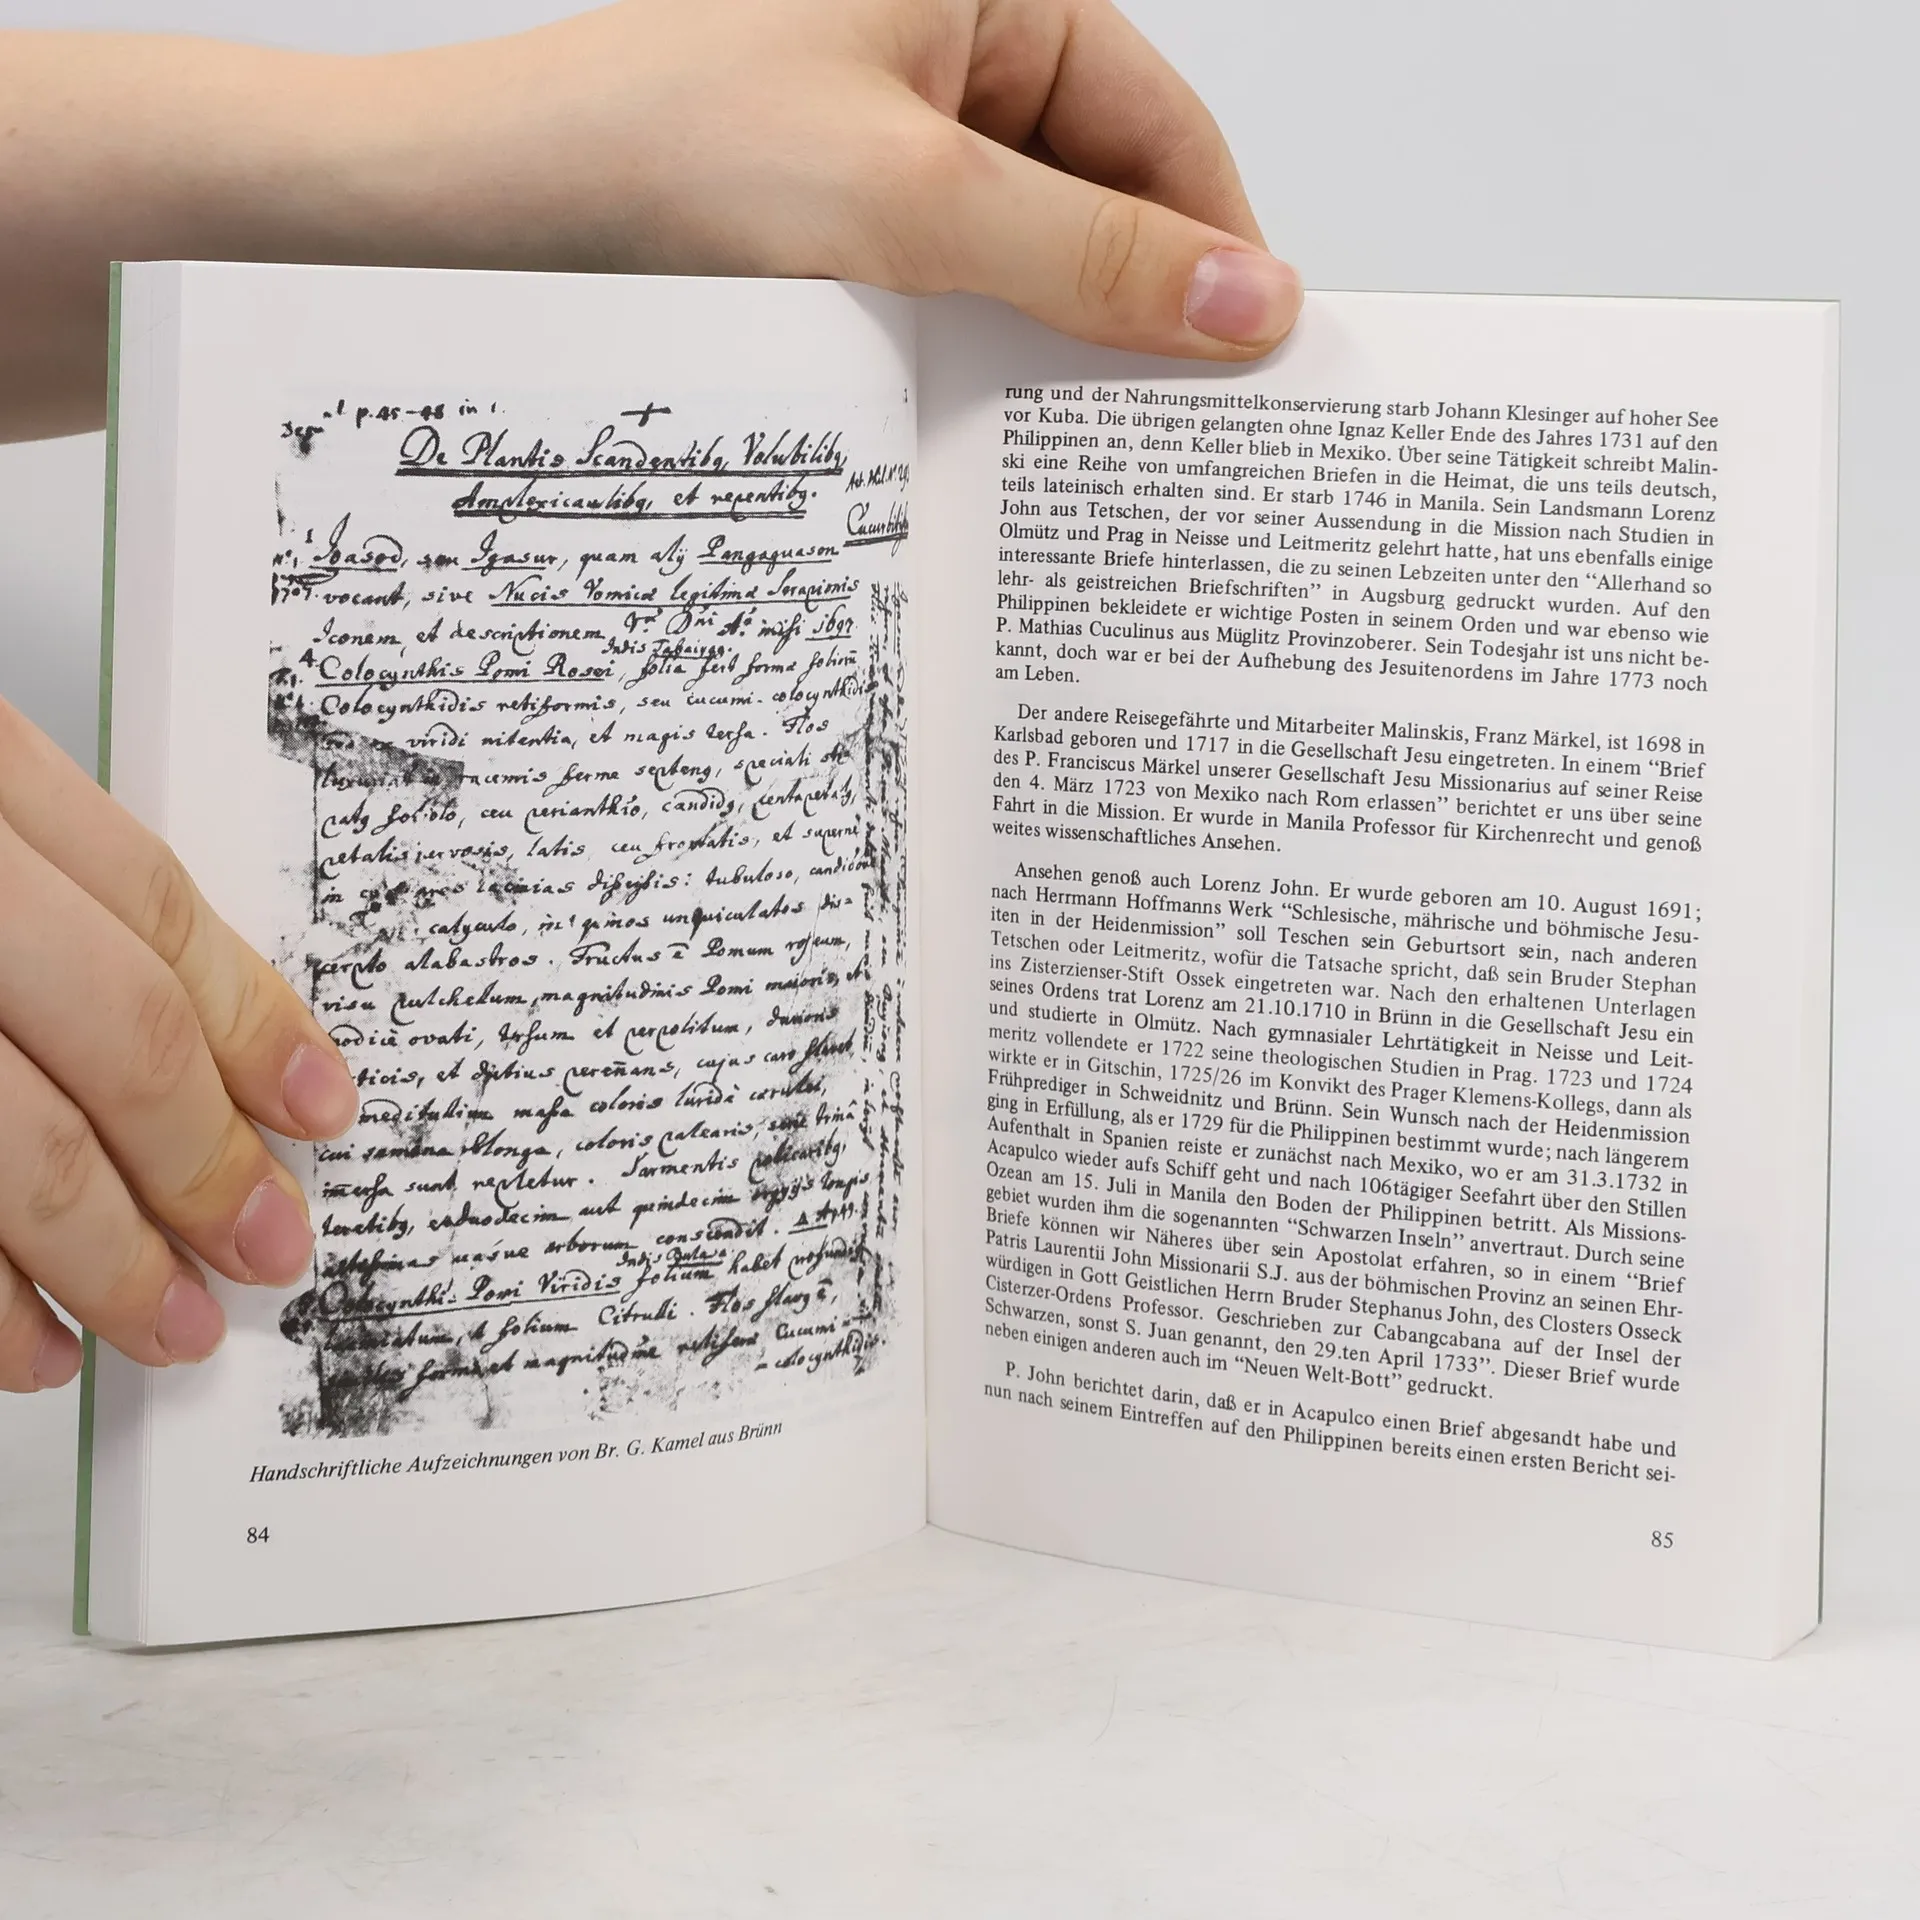 p. 45-48 in 1.
De Plantis Scandentibq, Volubilibq,
Amplexicaulibq, et repentibq.
Igasud, seu Igasur, quam alij Pangaguason
vocant, sive Nucis Vomicæ legitimæ Serapionis
Iconem, et descriptionem misi 1697
Colocynthis Pomi Rosei, folia fert forma
Colocynthidis retiformis, seu cucumi-colocynthidis
viridi nitentia, et magis tersa. Flos
racemis ferme
foliolo, ceu perianthio, candidq,
petalis nervosis, latis, ceu et superne
in lacinias tubuloso,
calyculo, unguiculatos dis=
alabastros. Fructus ē Pomum roseum,
visu pulchellum, magnitudinis Pomi maioris, et
modicè ovati, tersum et perpolitum, durioris
corticis, et diutius perennans, cujus caro
meditullium massa coloris luridè cærulei,
cui semina oblonga, coloris
immersa sunt, repletur. Sarmentis
duodecim aut quindecim orgyjs longis
usque arborum conscendit.
Colocynthis Pomi Viridis folium habet
folium Citrulli. Flos
forma, et magnitudine Cucumi=
=colocynthidis.
Handschriftliche Aufzeichnungen von Br. G. Kamel aus Brünn
84
rung und der Nahrungsmittelkonservierung starb Johann Klesinger auf hoher See
vor Kuba. Die übrigen gelangten ohne Ignaz Keller Ende des Jahres 1731 auf den
Philippinen an, denn Keller blieb in Mexiko. Über seine Tätigkeit schreibt Malin-
ski eine Reihe von umfangreichen Briefen in die Heimat, die uns teils deutsch,
teils lateinisch erhalten sind. Er starb 1746 in Manila. Sein Landsmann Lorenz
John aus Tetschen, der vor seiner Aussendung in die Mission nach Studien in
Olmütz und Prag in Neisse und Leitmeritz gelehrt hatte, hat uns ebenfalls einige
interessante Briefe hinterlassen, die zu seinen Lebzeiten unter den “Allerhand so
lehr- als geistreichen Briefschriften” in Augsburg gedruckt wurden. Auf den
Philippinen bekleidete er wichtige Posten in seinem Orden und war ebenso wie
P. Mathias Cuculinus aus Müglitz Provinzoberer. Sein Todesjahr ist uns nicht be-
kannt, doch war er bei der Aufhebung des Jesuitenordens im Jahre 1773 noch
am Leben.
Der andere Reisegefährte und Mitarbeiter Malinskis, Franz Märkel, ist 1698 in
Karlsbad geboren und 1717 in die Gesellschaft Jesu eingetreten. In einem “Brief
des P. Franciscus Märkel unserer Gesellschaft Jesu Missionarius auf seiner Reise
den 4. März 1723 von Mexiko nach Rom erlassen” berichtet er uns über seine
Fahrt in die Mission. Er wurde in Manila Professor für Kirchenrecht und genoß
weites wissenschaftliches Ansehen.
Ansehen genoß auch Lorenz John. Er wurde geboren am 10. August 1691;
nach Herrmann Hoffmanns Werk “Schlesische, mährische und böhmische Jesu-
iten in der Heidenmission” soll Teschen sein Geburtsort sein, nach anderen
Tetschen oder Leitmeritz, wofür die Tatsache spricht, daß sein Bruder Stephan
ins Zisterzienser-Stift Ossek eingetreten war. Nach den erhaltenen Unterlagen
seines Ordens trat Lorenz am 21.10.1710 in Brünn in die Gesellschaft Jesu ein
und studierte in Olmütz. Nach gymnasialer Lehrtätigkeit in Neisse und Leit-
meritz vollendete er 1722 seine theologischen Studien in Prag. 1723 und 1724
wirkte er in Gitschin, 1725/26 im Konvikt des Prager Klemens-Kollegs, dann als
Frühprediger in Schweidnitz und Brünn. Sein Wunsch nach der Heidenmission
ging in Erfüllung, als er 1729 für die Philippinen bestimmt wurde; nach längerem
Aufenthalt in Spanien reiste er zunächst nach Mexiko, wo er am 31.3.1732 in
Acapulco wieder aufs Schiff geht und nach 106tägiger Seefahrt über den Stillen
Ozean am 15. Juli in Manila den Boden der Philippinen betritt. Als Missions-
gebiet wurden ihm die sogenannten “Schwarzen Inseln” anvertraut. Durch seine
Briefe können wir Näheres über sein Apostolat erfahren, so in einem “Brief
Patris Laurentii John Missionarii S.J. aus der böhmischen Provinz an seinen Ehr-
würdigen in Gott Geistlichen Herrn Bruder Stephanus John, des Closters Osseck
Cisterzer-Ordens Professor. Geschrieben zur Cabangcabana auf der Insel der
Schwarzen, sonst S. Juan genannt, den 29.ten April 1733”. Dieser Brief wurde
neben einigen anderen auch im “Neuen Welt-Bott” gedruckt.
P. John berichtet darin, daß er in Acapulco einen Brief abgesandt habe und
nun nach seinem Eintreffen auf den Philippinen bereits einen ersten Bericht sei-
85